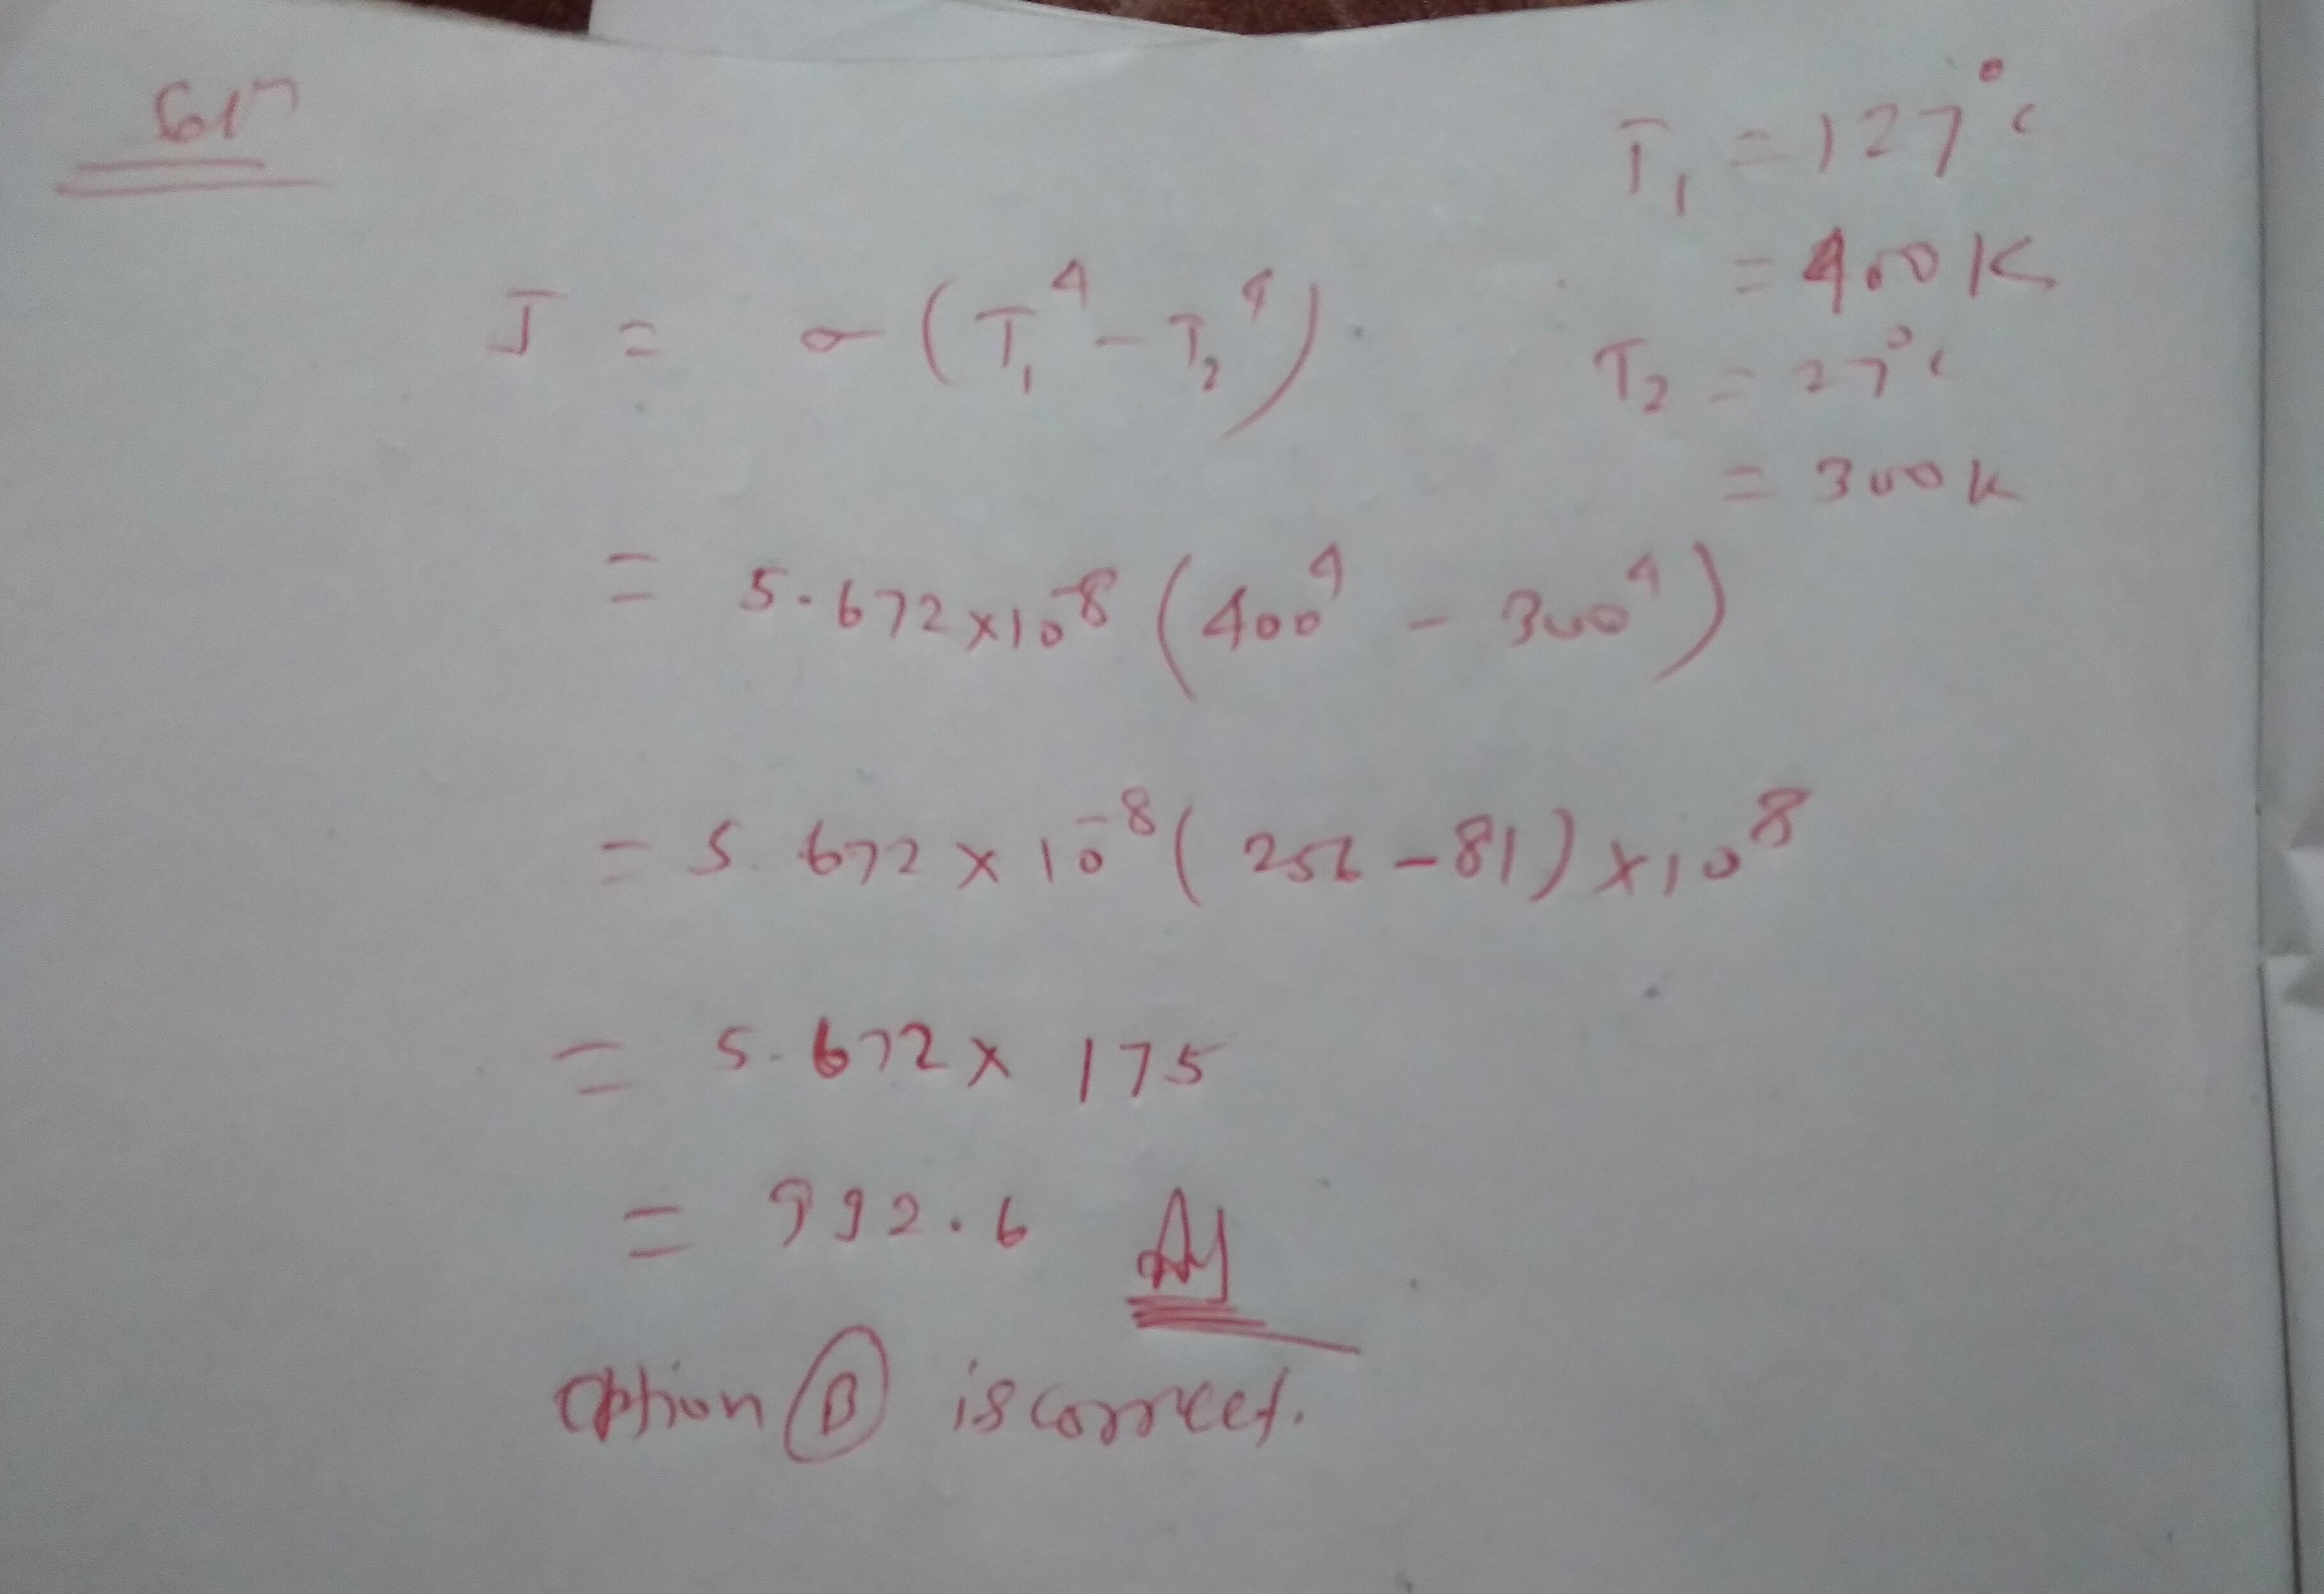 Solⁿ
T₁ = 127°C
= 400K
J = σ(T₁⁴ - T₂⁴)
T₂ = 27°C
= 300K
= 5.672×10⁻⁸ (400⁴ - 300⁴)
= 5.672×10⁻⁸(256-81)×10⁸
= 5.672× 175
= 992.6
Option Ⓑ is correct.